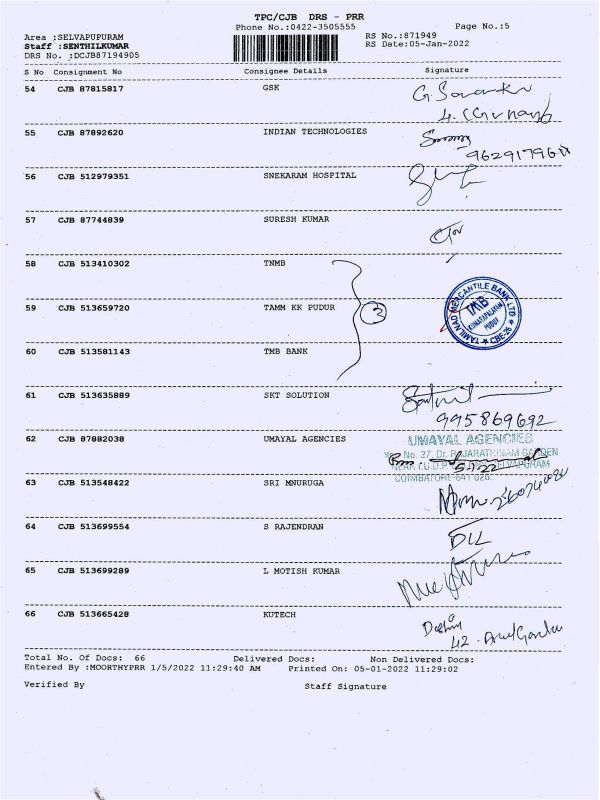 TPC/CJB DRS - PRR
Phone No.:0422-3505555
Page No.:5
Area :SELVAPUPURAM
Staff :SENTHILKUMAR
DRS No. :DCJB87194905
RS No.:871949
RS Date:05-Jan-2022
S No Consignment No Consignee Details Signature
54 CJB 87815817 GSK
55 CJB 87892620 INDIAN TECHNOLOGIES
56 CJB 512979351 SNEKARAM HOSPITAL
57 CJB 87744839 SURESH KUMAR
58 CJB 513410302 TNMB
59 CJB 513659720 TAMM KK PUDUR
TAMIL NAD MERCANTILE BANK LTD
TMB
PUDUR
CBE-26
60 CJB 513581143 TMB BANK
61 CJB 513635889 SKT SOLUTION
995869692
62 CJB 87882038 UMAYAL AGENCIES
UMAYAL AGENCIES
No. 27, Dr. RAJARATHINAM GARDEN
SELVAPURAM
COIMBATORE-641 026.
63 CJB 513548422 SRI MNURUGA
64 CJB 513699554 S RAJENDRAN
65 CJB 513699289 L MOTISH KUMAR
66 CJB 513665428 KUTECH
Total No. Of Docs: 66 Delivered Docs: Non Delivered Docs:
Entered By :MOORTHYPRR 1/5/2022 11:29:40 AM Printed On: 05-01-2022 11:29:02
Verified By Staff Signature